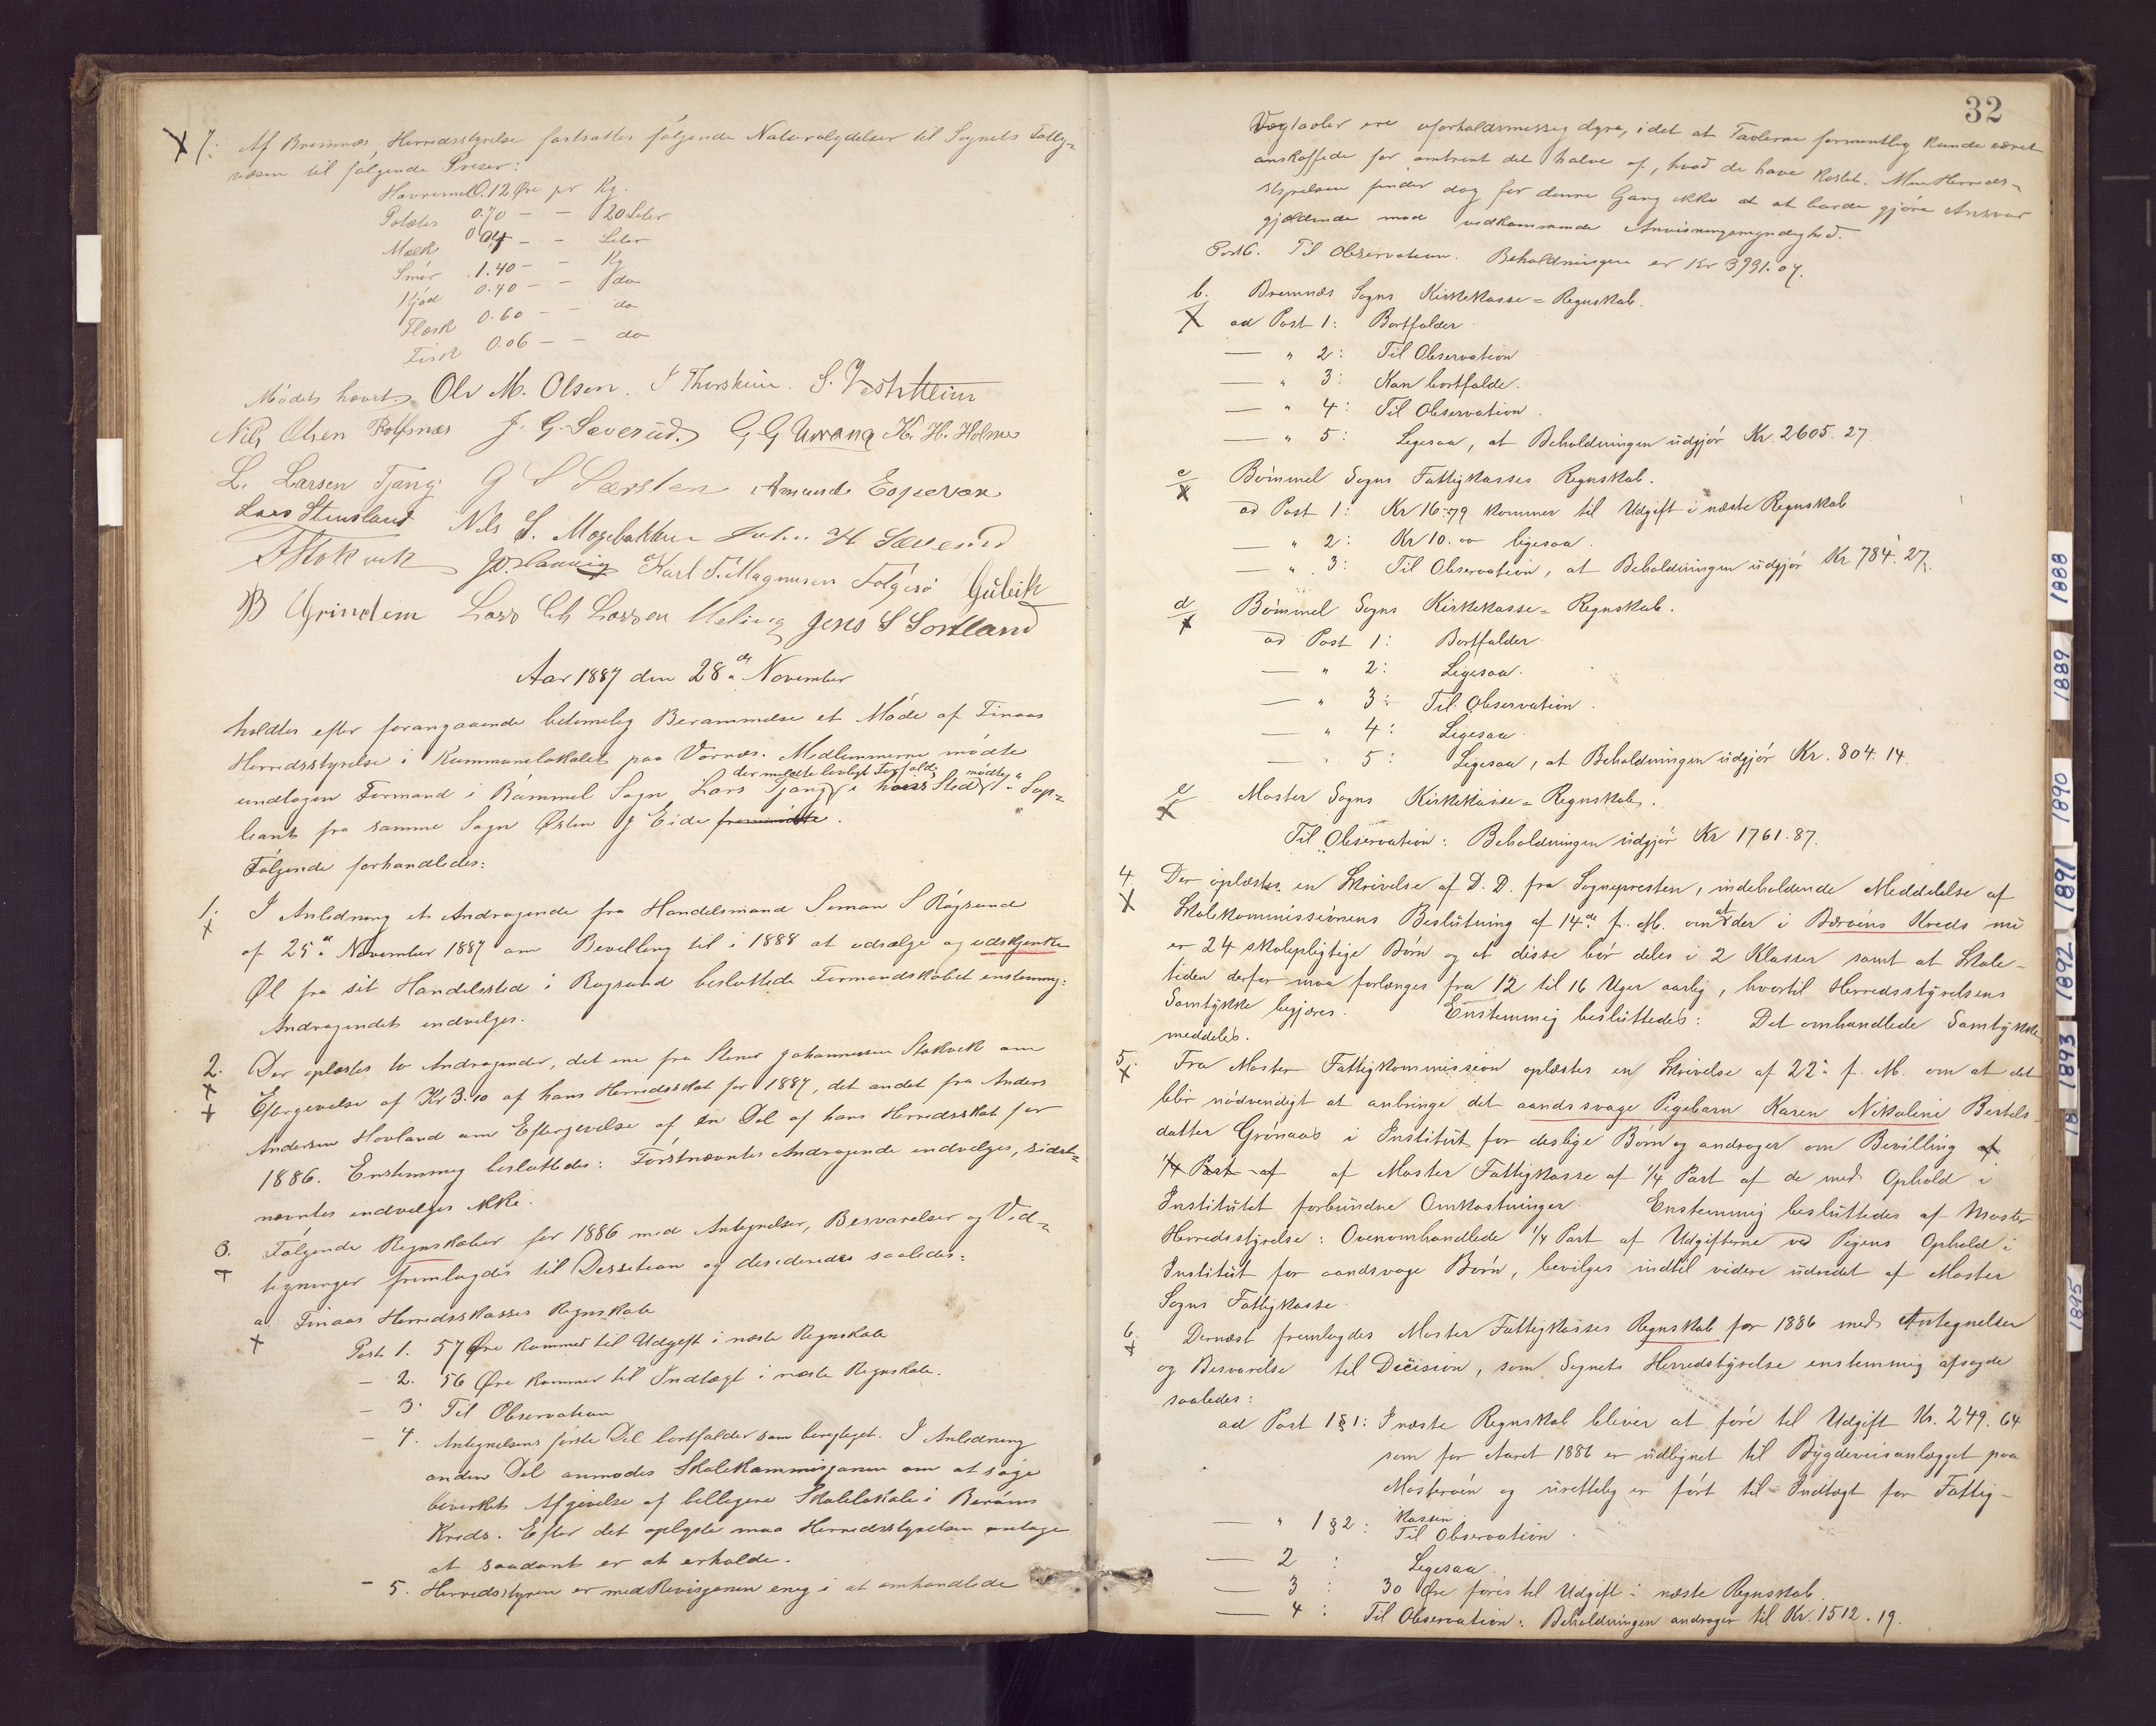 7. Af Bremnæs Herredsstyrelse fastsattes følgende Naturalydelser til Sognets Fattig=
væsen til følgende Priser:
Havremel 0.12 Øre pr Kg.
Potetes 0.70 — — 20 Liter
Mælk 0.04 — — Liter
Smør 1.40 — — Kg
Kjød 0.40 — — do
Flæsk 0.60 — — do
Fisk 0.06 — — do
Mødet hævet. Ole M. Olsen. S. Vestrheim
Nils Olsen Rolfsnæs J. G. Sæverud. G G Urrang K. H. Holme
L. Larsen Tjang. G S Amund Espevær
Lars Stensland Nils S. Mogebakken John H Sæverud
Stokvik Karl T. Magnusen Følgerø Gubeik
B Grindem Lars Ch Larsen Meling Jens S Sortland
Aar 1887 den 28de November
holdtes efter forangaaende betimelig Berammelse et Møde af Finaas
Herredsstyrelse i Kummunelokalet paa Vornæs. Medlemmerne mødte
der meldte lovligt Forfald mødte
undtagen Formand i Bømmel Sogn Lars Tjang i hvis Sted 1. Sup=
leant fra samme Sogn Østen J Eide fremmødte.
Følgende forhandledes:
1. I Anledning et Andragende fra Handelsmand Simon S Røgsund
af 25de November 1887 om Bevilling til i 1888 at udsælge og udskjenke
Øl fra sit Handelssted i Rogsund besluttede Formandskabet enstemmig:
Andragendet indvilges.
2. Der oplæstes to Andragender, det ene fra Stener Johannessen Stokvik om
Eftergivelse af Kr 3.10 af hans Herredsskat for 1887, det andet fra Anders
Andersen Hovland om Eftergivelse af en Del af hans Herredsskat for
1886. Enstemmig besluttedes: Førstnævntes Andragende indvilges, sidst=
nævntes indvilges ikke.
3. Følgende Regnskaber for 1886 med Antegnelser, Besvarelser og Ved=
tegninger fremlagdes til Decision og desideredes saaledes:
a. Finaas Herredskasses Regnskab
Post 1. 57 Øre kommer til Udgift i næste Regnskab
— 2. 56 Øre kommer til Indtægt i næste Regnskab.
— 3. Til Observation
— 4. Antegnelsens første Del bortfalder som berigtiget. I Anledning
anden Del anmodes Skolekommisjonen om at søge
bevirket Afgivelse af billigere Skolelokale i Berøens
Kreds. Efter det oplyste maa Herredsstyrelsen antage
at saadant er at erholde.
— 5. Herredsstyren er med Revisjonen enig i at omhandlede
32
Vægtavler ere uforholdsmessig dyre, idet at Tavlerne formentlig kunde været
anskaffede for omtrent det halve af, hvad de have kostet. Men Herreds=
styrelsen finder dog for denne Gang ikke at burde gjøre Ansvar
gjældende mod vedkommende Anvisningsmyndighed.
Post 6. Til Observation. Beholdningen er Kr 3991.07.
b. Bremnæs Sogns Kirkekasse=Regnskab.
ad Post 1: Bortfalder
— " 2: Til Observation
— " 3: Kan bortfalde.
— " 4: Til Observation.
— " 5: Ligesaa, at Beholdningen udgjør Kr. 2605.27
c Bømmel Sogns Fattigkasses Regnskab.
ad Post 1: Kr 16.79 kommer til Udgift i næste Regnskab
— " 2: Kr 10.00 ligesaa.
— " 3: Til Observation, at Beholdningen udgjør Kr 784.27.
d Bømmel Sogns Kirkekasse=Regnskab.
ad Post 1: Bortfalder
— " 2: Ligesaa.
— " 3: Til Observation.
— " 4: Ligesaa
— " 5: Ligesaa, at Beholdningen udgjør Kr. 804.14.
e Moster Sogns Kirkekasse=Regnskab.
Til Observation: Beholdningen udgjør Kr 1761.87.
4. Der oplæstes en Skrivelse af D. D. fra Sognepresten, indeholdende Meddelelse af
Skolekommissionens Beslutning af 14de f. M. om at der i Børøens Kreds nu
er 24 skolepligtige Børn og at disse bør deles i 2 Klasser samt at Skole-
tiden derfor maa forlænges fra 12 til 16 Uger aarlig, hvortil Herredsstyrelsens
Samtykke begjæres. Enstemmig besluttedes: Det omhandlede Samtykke
meddeles.
5. Fra Moster Fattigkommission oplæstes en Skrivelse af 22de f. M. om at det
blir nødvendigt at anbringe det aandssvage Pigebarn Karen Nikoline Bertels-
datter Grønaas i Institut for deslige Børn og andrager om Bevilling af
1/4 Part af af Moster Fattigkasse af 1/4 Part af de med Ophold i
Institutet forbundne Omkostninger. Enstemmig besluttedes af Moster
Herredsstyrelse: Ovenomhandlede 1/4 Part af Udgifterne ved Pigens Ophold i
Institut for aandsvage Børn, bevilges indtil videre udredet af Moster
Sogns Fattigkasse.
6. Dernæst fremlagdes Moster Fattigkasses Regnskab for 1886 med Antegnelser
og Besvarelse til Decision, som Sognets Herredstyrelse enstemmig afsagde
saaledes:
ad Post 1 § 1: I næste Regnskab bliver at føre til Udgift Kr. 249.64
som for Aaret 1886 er udlignet til Bygdeveisanlægget paa
Mosterøen og urettelig er ført til Indtægt for Fattig-
kassen.
— " 1 § 2: Til Observation.
— 2 : Ligesaa.
— 3 : 30 Øre føres til Udgift i næste Regnskab.
— 4 : Til Observation: Beholdningen andrager til Kr. 1512.19.
1888
1889
1890
1891
1892
1893
18
1895